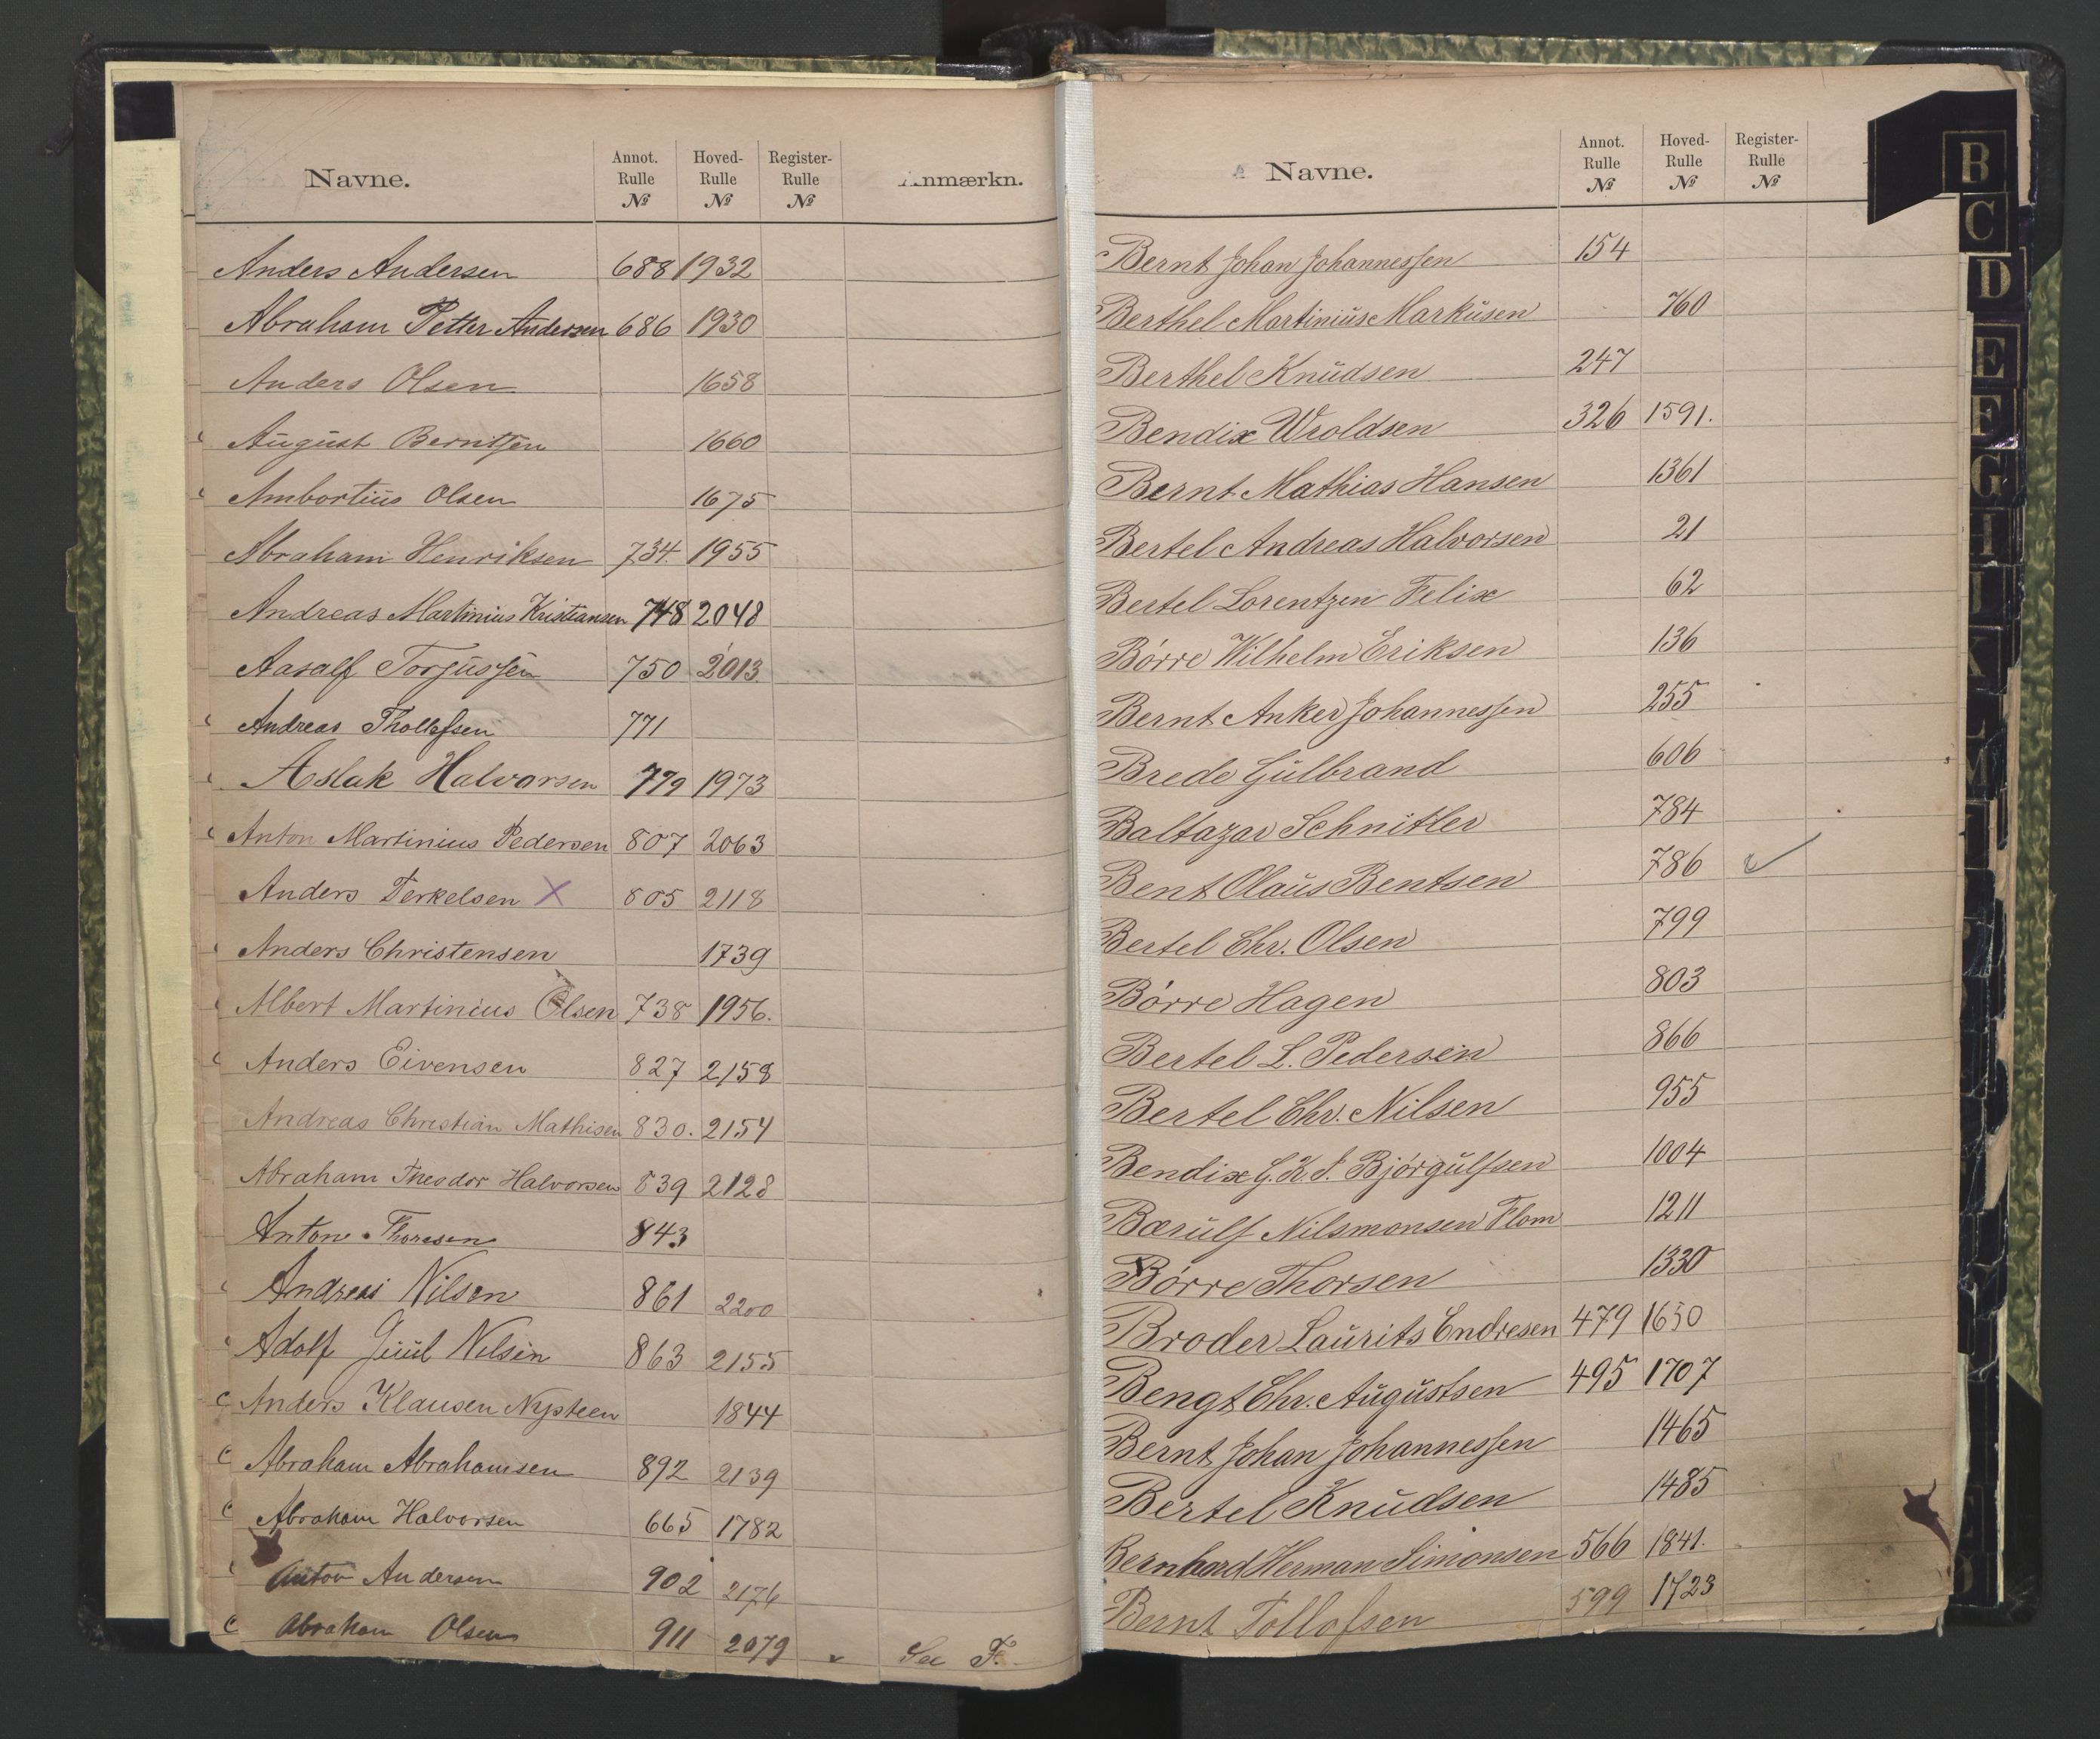 Navne. Annot. Rulle № Hoved-Rulle № Register-Rulle № Anmærkn.
Anders Andersen 688 1932
Abraham Petter Andersen 686 1930
Anders Olsen 1658
August Berntsen 1660
Ambortius Olsen 1675
Abraham Henriksen 734. 1955
Andreas Martinius Kristiansen 748 2048
Aasalf Torjussen 750 2013
Andreas Thollefsen 771
Aslak Halvorsen 779 1973
Anton Martinius Pedersen 807 2063
Anders Terkelsen X 805 2118
Anders Christensen 1739
Albert Martinius Olsen 738 1956.
Anders Eivensen 827 2158
Andreas Christian Mathisen 830. 2154
Abraham Theodor Halvorsen 839 2128
Anton Thoresen 843
Andreas Nilsen 861 2200
Adolf Juul Nilsen 863 2155
Anders Klausen Nysteen 1844
Abraham Abrahamsen 892 2139
Abraham Halvorsen 665 1782
Anton Andersen 902 2176
Abraham Olsen 911 2079 See F.
Navne. Annot. Rulle № Hoved-Rulle № Register-Rulle №
Bernt Johan Johannessen 154
Berthel Martinius Markusen 760
Berthel Knudsen 247
Bendix Wroldsen 326 1591.
Bernt Mathias Hansen 1361
Bertel Andreas Halvorsen 21
Bertel Lorentzen Felix 62
Börre Wilhelm Eriksen 136
Bernt Anker Johannessen 255
Brede Gulbrand 606
Baltazar Schnitler 784
Bent Olaus Bentsen 786 ✓
Bertel Chr. Olsen 799
Börre Hagen 803
Bertel L. Pedersen 866
Bertel Chr. Nilsen 955
Bendix G. K. J. Bjórgulfsen 1004
Bærulf Nilsmonsen Flom 1211
Börre Thorsen 1330
Broder Laurits Endresen 479 1650
Bengt Chr. Augustsen 495 1707
Bernt Johan Johannessen 1465
Bertel Knudsen 1485
Bernhard Herman Simonsen 566 1841.
Bernt Tollofsen 599 1723
B
C
D
E
F
G
H
I
K
L
M